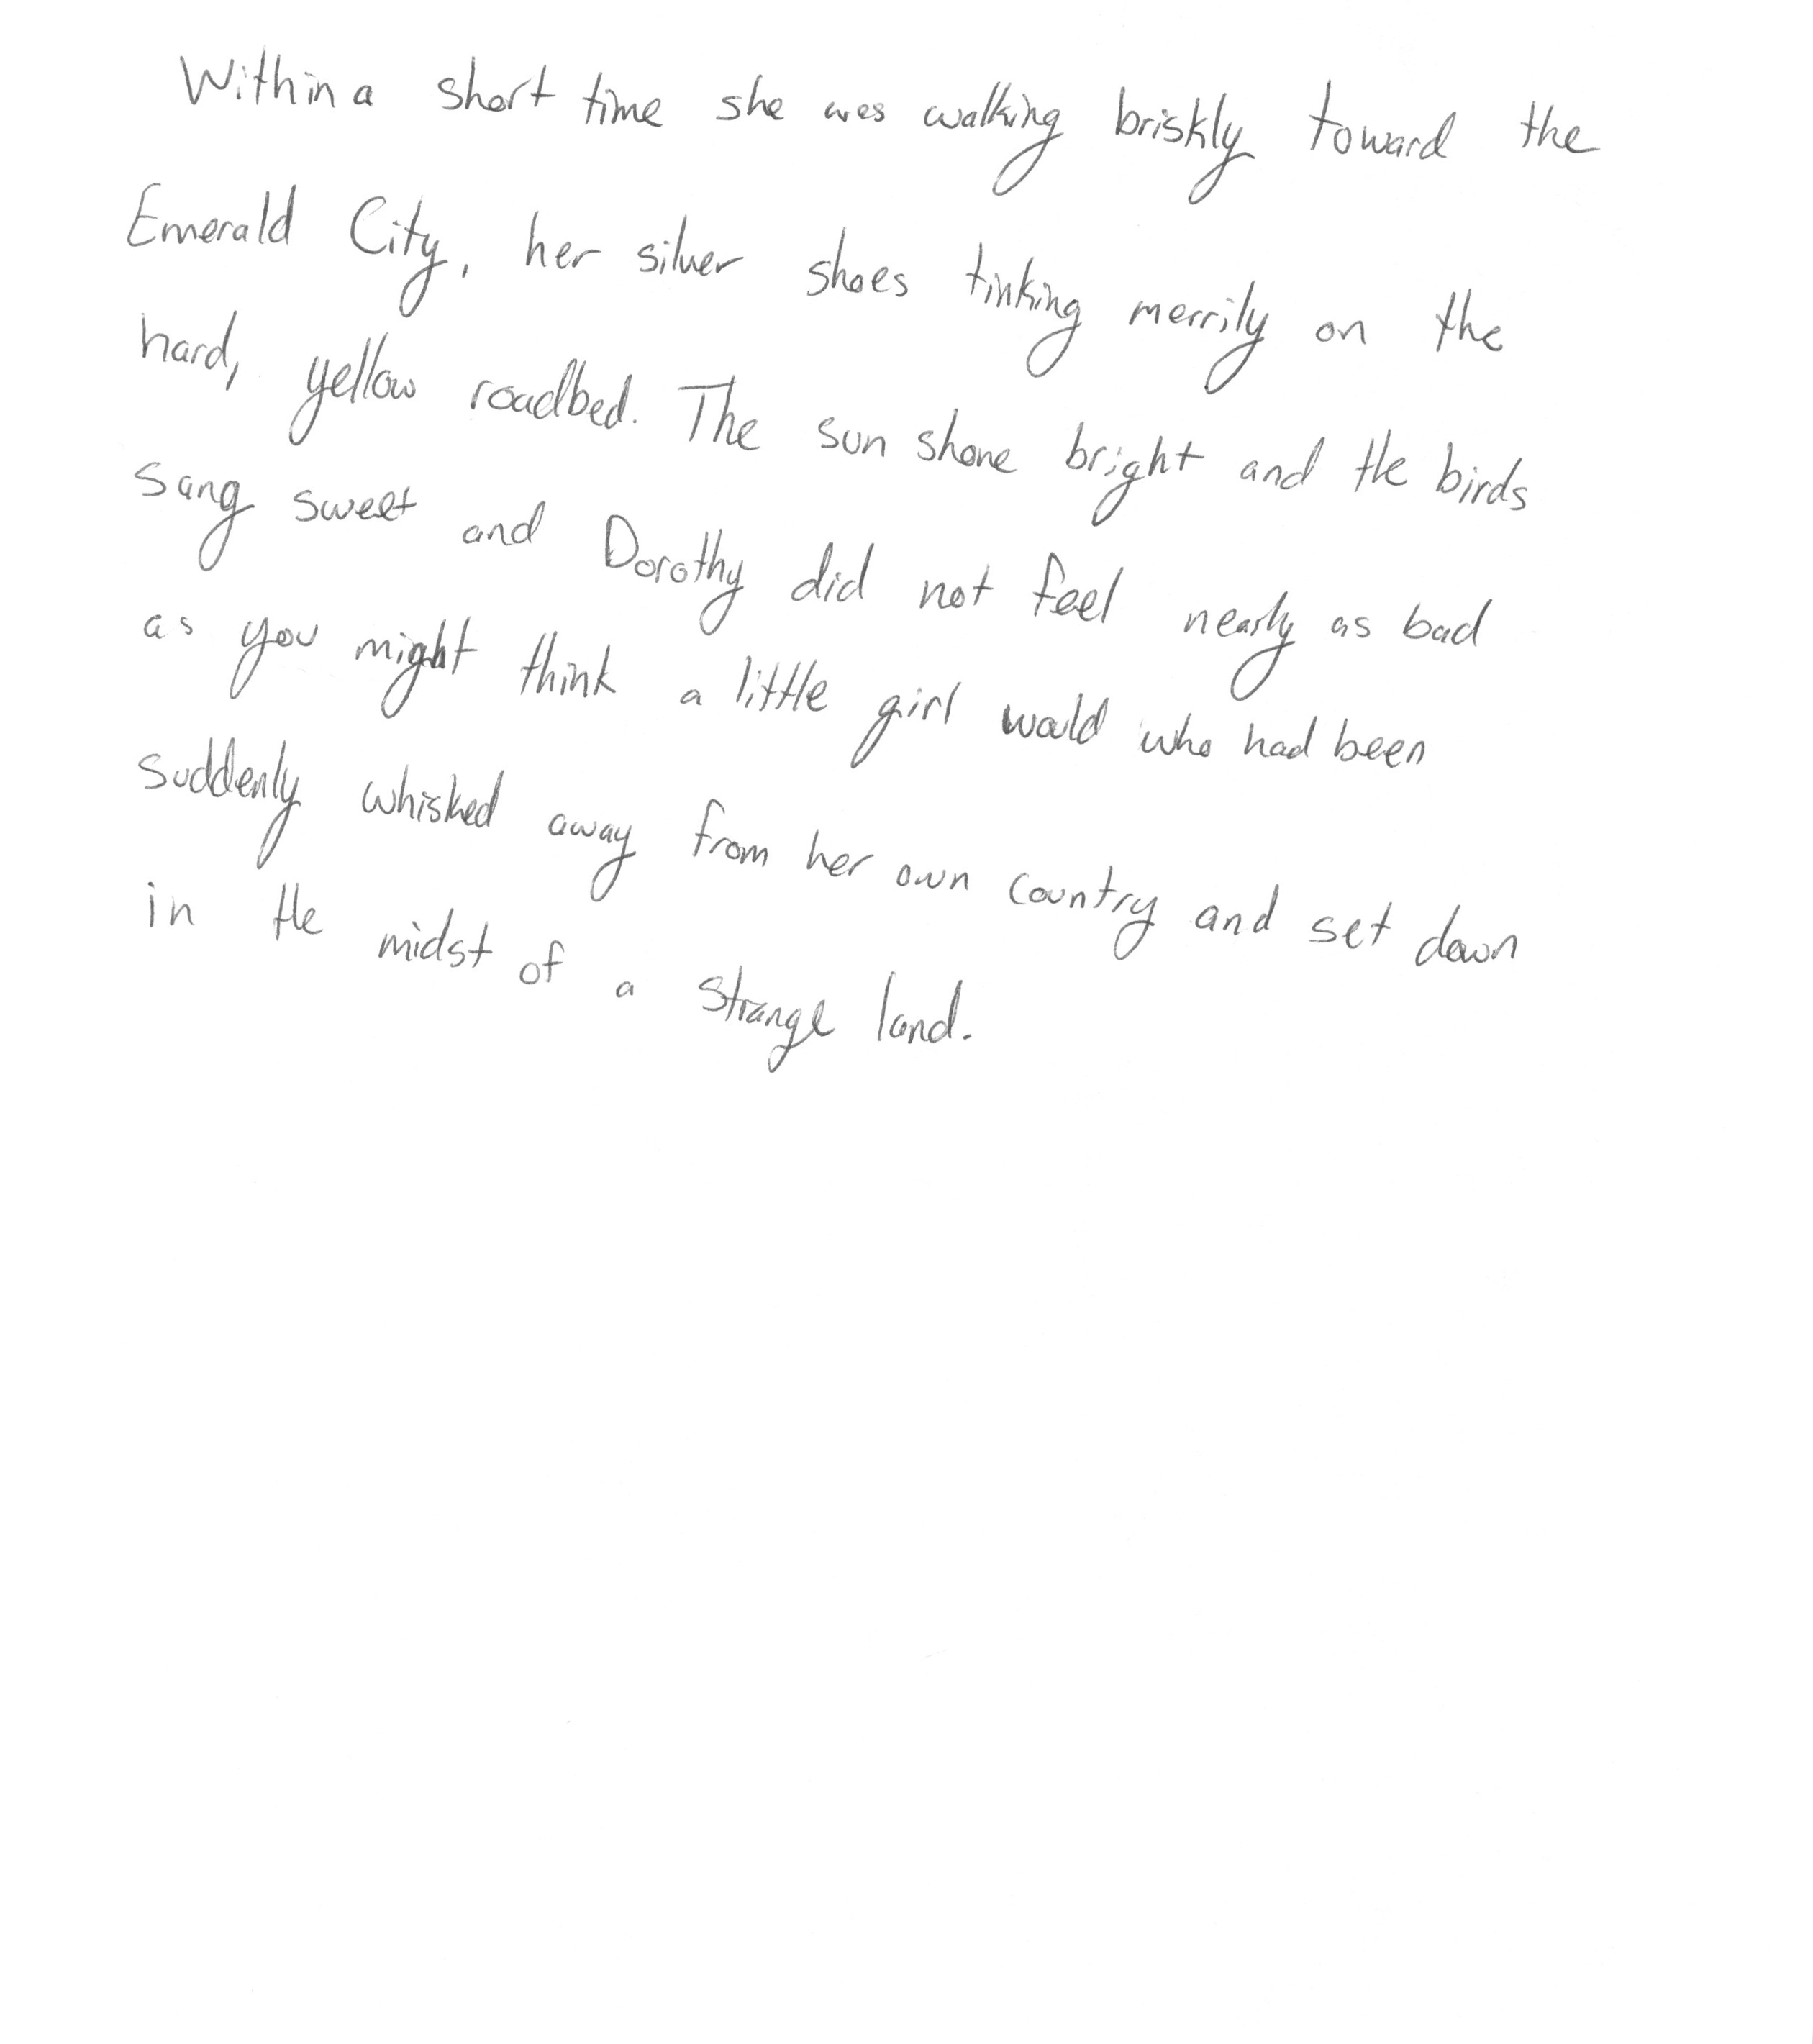 Within a short time she was walking briskly toward the
Emerald City, her silver shoes tinking merrily on the
hard, yellow roadbed. The sun shone bright and the birds
sang sweet and Dorothy did not feel nearly as bad
as you might think a little girl would who had been
suddenly whisked away from her own country and set down
in the midst of a strange land.